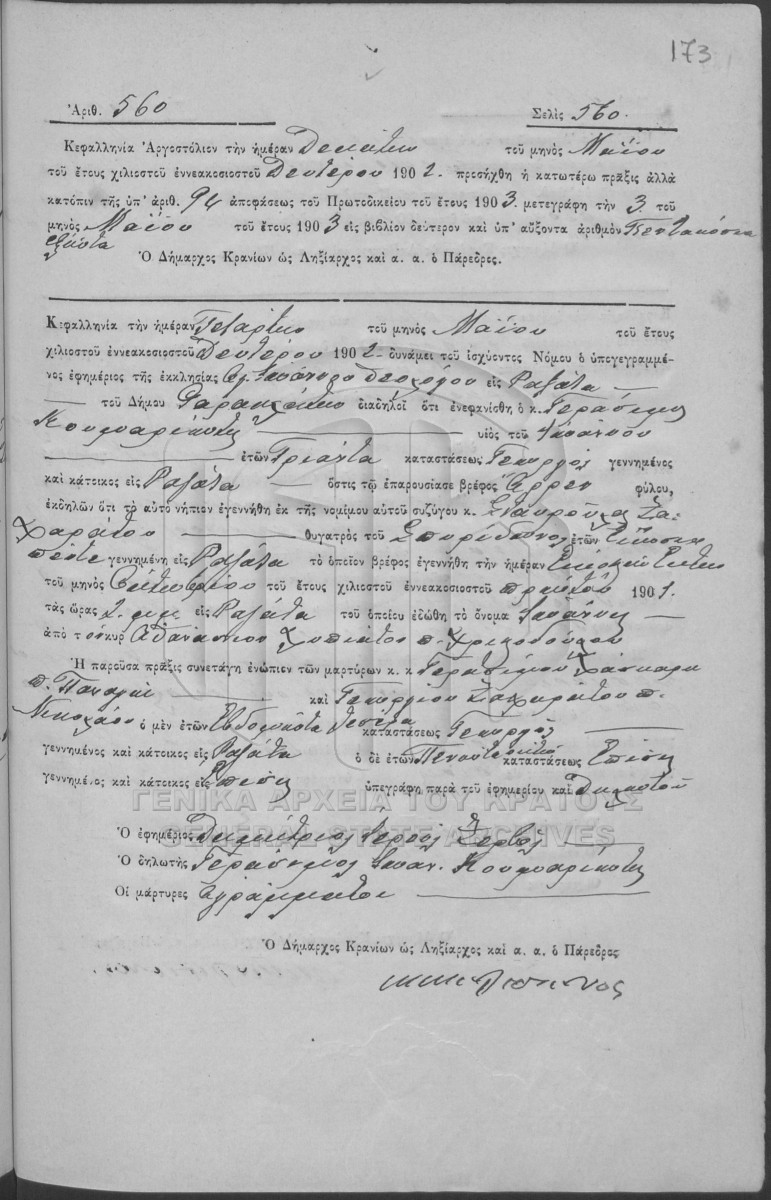 173
Ἀριθ. 560 Σελὶς 560.
Κεφαλληνία Ἀργοστόλιον τὴν ἡμέραν Δεκάτην τοῦ μηνὸς Μαΐου
τοῦ ἔτους χιλιοστοῦ ἐννεακοσιοστοῦ Δευτέρου 1902. προσήχθη ἡ κατωτέρω πρᾶξις ἀλλὰ
κατόπιν τῆς ὑπ' ἀριθ. 94 ἀποφάσεως τοῦ Πρωτοδικείου τοῦ ἔτους 1903. μετεγράφη τὴν 3. τοῦ
μηνὸς Μαΐου τοῦ ἔτους 1903 εἰς βιβλίον δεύτερον καὶ ὑπ' αὔξοντα ἀριθμὸν Πεντακόσια
ἑξῆντα
Ὁ Δήμαρχος Κρανίων ὡς Ληξίαρχος καὶ α. α. ὁ Πάρεδρος.
Κεφαλληνία τὴν ἡμέραν Τετάρτην τοῦ μηνὸς Μαΐου τοῦ ἔτους
χιλιοστοῦ ἐννεακοσιοστοῦ Δευτέρου 1902. δυνάμει τοῦ ἰσχύοντος Νόμου ὁ ὑπογεγραμμέ-
νος ἐφημέριος τῆς ἐκκλησίας Ἁγ. Ἰωάννου Θεολόγου εἰς Ραζάτα
τοῦ Δήμου διαδηλοῖ ὅτι ἐνεφανίσθη ὁ κ. Γεράσιμος
υἱὸς τοῦ Ἰωάννου
ἐτῶν Τριάντα καταστάσεως Γεωργὸς γεννημένος
καὶ κάτοικος εἰς Ραζάτα ὅστις τῷ ἐπαρουσίασε βρέφος Ἄρρεν φύλου,
ἐκδηλῶν ὅτι τὸ αὐτὸ νήπιον ἐγεννήθη ἐκ τῆς νομίμου αὐτοῦ συζύγου κ. Σταυρούλας Ζα-
χαράτου θυγατρὸς τοῦ Σπυρίδωνος ἐτῶν Εἴκοσι
πέντε γεννημένη εἰς Ραζάτα τὸ ὁποῖον βρέφος ἐγεννήθη τὴν ἡμέραν Εἰκοστὴν Ἕκτην
τοῦ μηνὸς Ὀκτωβρίου τοῦ ἔτους χιλιοστοῦ ἐννεακοσιοστοῦ πρώτου 1901.
τὰς ὥρας 2. μ.μ. εἰς Ραζάτα τοῦ ὁποίου ἐδώθη τὸ ὄνομα Ἰωάννης
ἀπὸ τὸν κὺρ Ἀθανάσιον
Ἡ παροῦσα πρᾶξις συνετάγη ἐνώπιον τῶν μαρτύρων κ. κ. Γερασίμου
π. Παναγῆ καὶ Γεωργίου Ζαχαράτου π.
Νικολάου ὁ μὲν ἐτῶν Ἑβδομῆντα Τεσσάρα καταστάσεως Γεωργὸς
γεννημένος καὶ κάτοικος εἰς Ραζάτα ὁ δὲ ἐτῶν καταστάσεως Ἐπίσης
γεννημένος καὶ κάτοικος εἰς Ἐπίσης ὑπεγράφη παρὰ τοῦ ἐφημερίου καὶ Δηλωτοῦ
ΓΕΝΙΚΑ ΑΡΧΕΙΑ ΤΟΥ ΚΡΑΤΟΥΣ
GENERAL STATE ARCHIVES
Ὁ ἐφημέριος Δημήτριος Ἱερεὺς
Ὁ δηλωτὴς Γεράσιμος Ἰωαν.
Οἱ μάρτυρες Ἀγράμματοι
Ὁ Δήμαρχος Κρανίων ὡς Ληξίαρχος καὶ α. α. ὁ Πάρεδρος